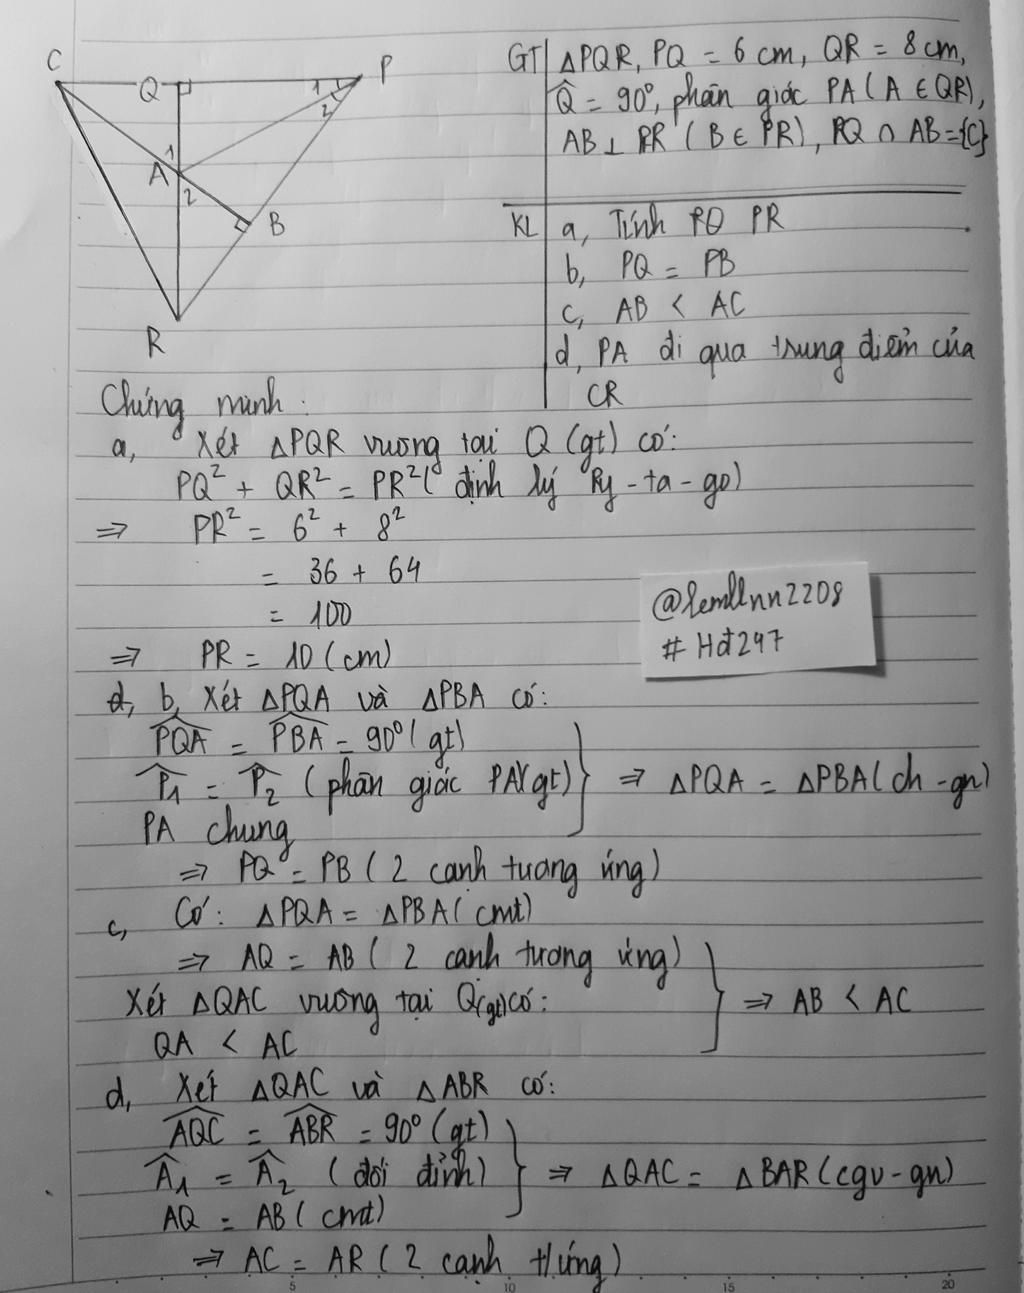 C
Q
P
1
2
A
1
2
B
R
GT △PQR, PQ = 6 cm, QR = 8 cm,
Q̂ = 90°, phân giác PA (A ∈ QR),
AB ⊥ PR (B ∈ PR), PQ ∩ AB = {C}
KL a, Tính PQ PR
b, PQ = PB
c, AB < AC
d, PA đi qua trung điểm của
CR
Chứng minh:
a, Xét △PQR vuông tại Q (gt) có:
PQ² + QR² = PR² ( định lý Py-ta-go)
⇒ PR² = 6² + 8²
= 36 + 64
= 100
⇒ PR = 10 (cm)
@lemllnn2208
# Hđ247
b, Xét △PQA và △PBA có:
PQA = PBA = 90° (gt)
P̂1 = P̂2 (phân giác PA)(gt)
PA chung
⇒ △PQA = △PBA (ch - gn)
⇒ PQ = PB ( 2 cạnh tương ứng)
c, Có: △PQA = △PBA (cmt)
⇒ AQ = AB ( 2 cạnh tương ứng)
Xét △QAC vuông tại Q(gt) có:
QA < AC
⇒ AB < AC
d, Xét △QAC và △ABR có:
AQC = ABR = 90° (gt)
Â1 = Â2 (đối đỉnh)
AQ = AB ( cmt)
⇒ △QAC = △BAR (cgv - gn)
⇒ AC = AR ( 2 cạnh t/ứng)
5 10 15 20